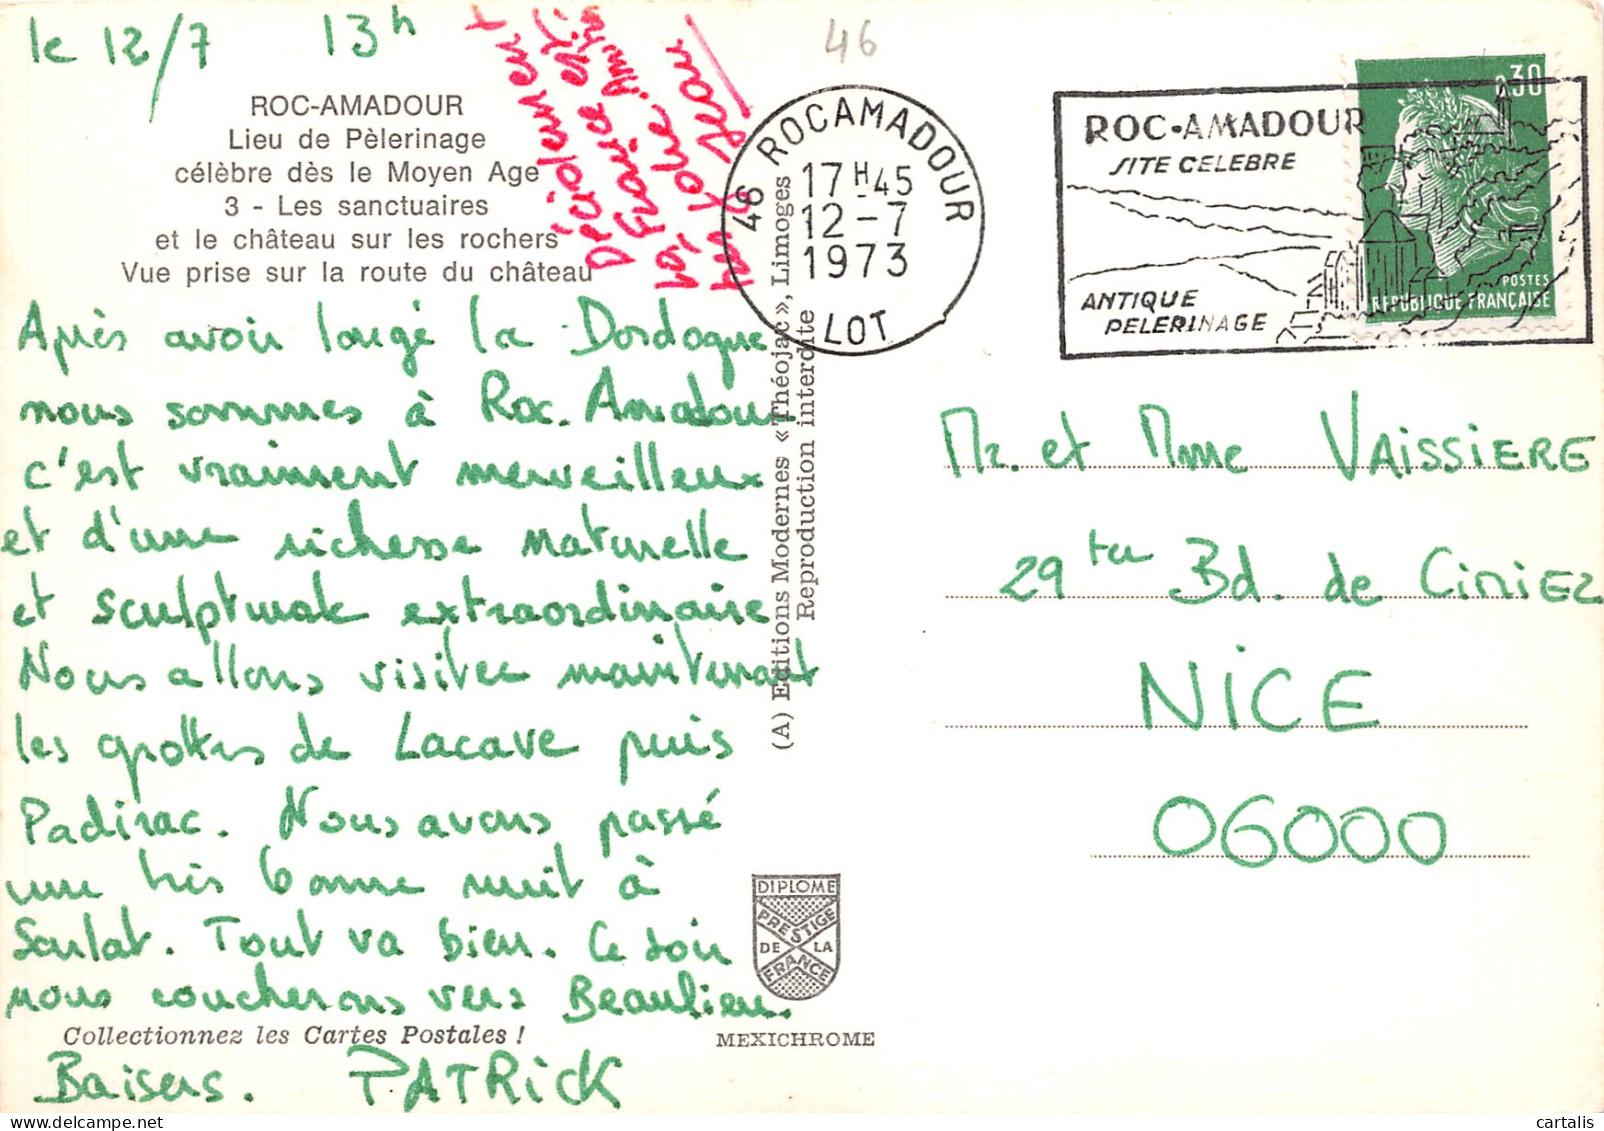 le 12/7 13h
46
ROC-AMADOUR
Lieu de Pèlerinage
célèbre dès le Moyen Age
3 - Les sanctuaires
et le château sur les rochers
Vue prise sur la route du château
Décidement
la France est
très jolie. Amitiés
Jean
46 ROCAMADOUR
17H45
12-7
1973
LOT
ROC-AMADOUR
SITE CELEBRE
ANTIQUE
PELERINAGE
0,30
POSTES
REPUBLIQUE FRANÇAISE
Après avoir longé la Dordogne
nous sommes à Roc. Amadour
c'est vraiment merveilleux
et d'une richesse naturelle
et sculpturale extraordinaire
Nous allons visiter maintenant
les grottes de Lacave puis
Padirac. Nous avons passé
une très bonne nuit à
Sarlat. Tout va bien. Ce soir
nous coucherons vers Beaulieu.
Baisers. PATRICK
(A) Editions Modernes «Théojac», Limoges
Reproduction interdite
Mr. et Mme VAISSIERE
29 ter Bd. de CIMIEZ
NICE
06000
DIPLOME
PRESTIGE
DE LA
FRANCE
Collectionnez les Cartes Postales !
MEXICHROME
cartalis for www.delcampe.net